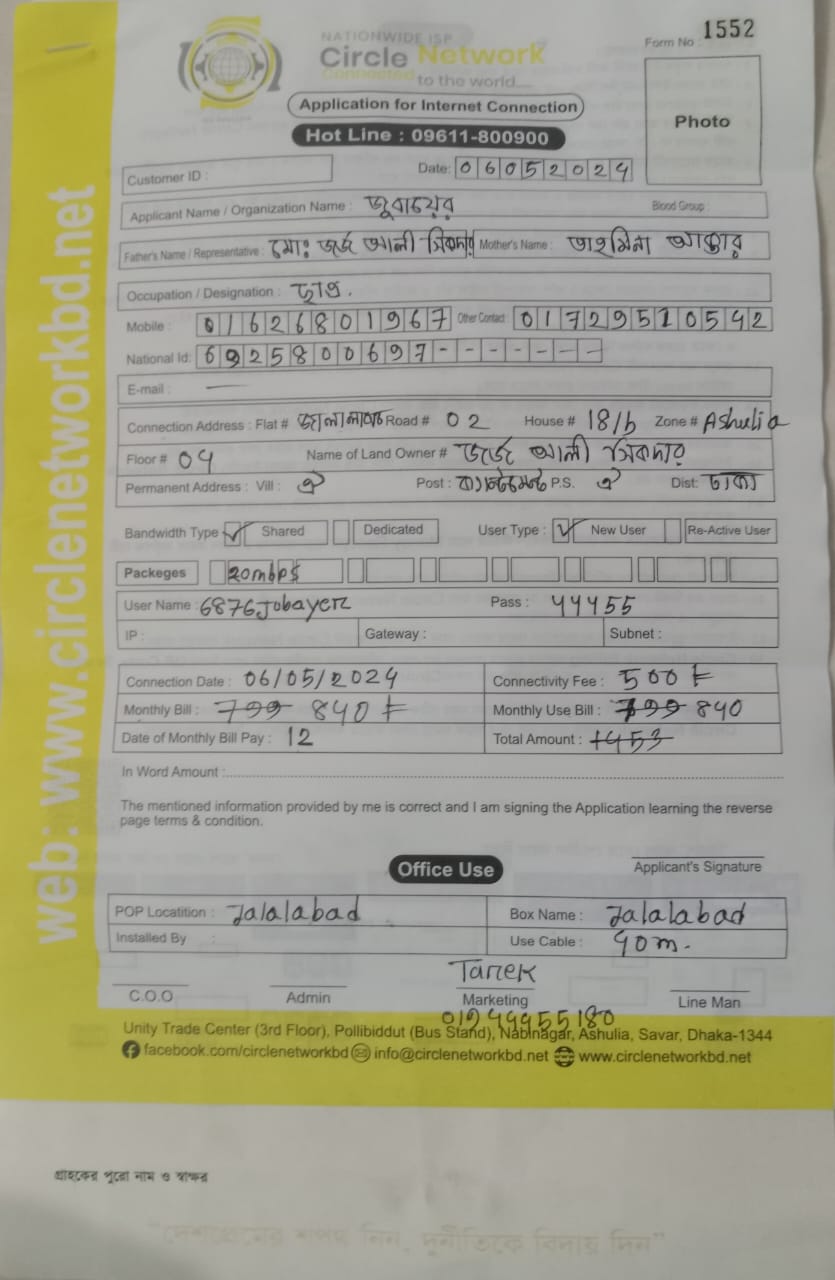 NATIONWIDE ISP
Circle Network
Connected to the world....
Form No : 1552
Application for Internet Connection
Hot Line : 09611-800900
Photo
Customer ID :
Date: 06052024
Applicant Name / Organization Name : জুবায়ের Blood Group :
Father's Name / Representative : মোঃ জর্জ আলী সিকদার Mother's Name : তাহমিনা আক্তার
Occupation / Designation : ছাত্র.
Mobile : 01626801967 Other Contact : 01729510542
National Id: 6925800697-------
E-mail : —
Connection Address : Flat # জালালাবাদ Road # 02 House # 18/b Zone # Ashulia
Floor # 04 Name of Land Owner # জর্জ আলী সিকদার
Permanent Address : Vill : ঐ Post : ক্যান্টনমেন্ট P.S. ঐ Dist: ঢাকা
Bandwidth Type ✓ Shared Dedicated User Type : ✓ New User Re-Active User
Packeges 20mbps
User Name : 6876Jobayer Pass : 44455
IP : Gateway : Subnet :
Connection Date : 06/05/2024 Connectivity Fee : 500 ৳
Monthly Bill : 799 840 ৳ Monthly Use Bill : 799 840
Date of Monthly Bill Pay : 12 Total Amount : 1453
In Word Amount :
The mentioned information provided by me is correct and I am signing the Application learning the reverse
page terms & condition.
Office Use
Applicant's Signature
POP Locatition : Jalalabad Box Name : Jalalabad
Installed By : Use Cable : 40m.
Tarek
C.O.O Admin Marketing Line Man
Unity Trade Center (3rd Floor), Pollibiddut (Bus Stand), Nabinagar, Ashulia, Savar, Dhaka-1344
facebook.com/circlenetworkbd info@circlenetworkbd.net www.circlenetworkbd.net
web: www.circlenetworkbd.net
গ্রাহকের পুরো নাম ও স্বাক্ষর
"দেশপ্রেমের শপথ নিন, দুর্নীতিকে বিদায় দিন"